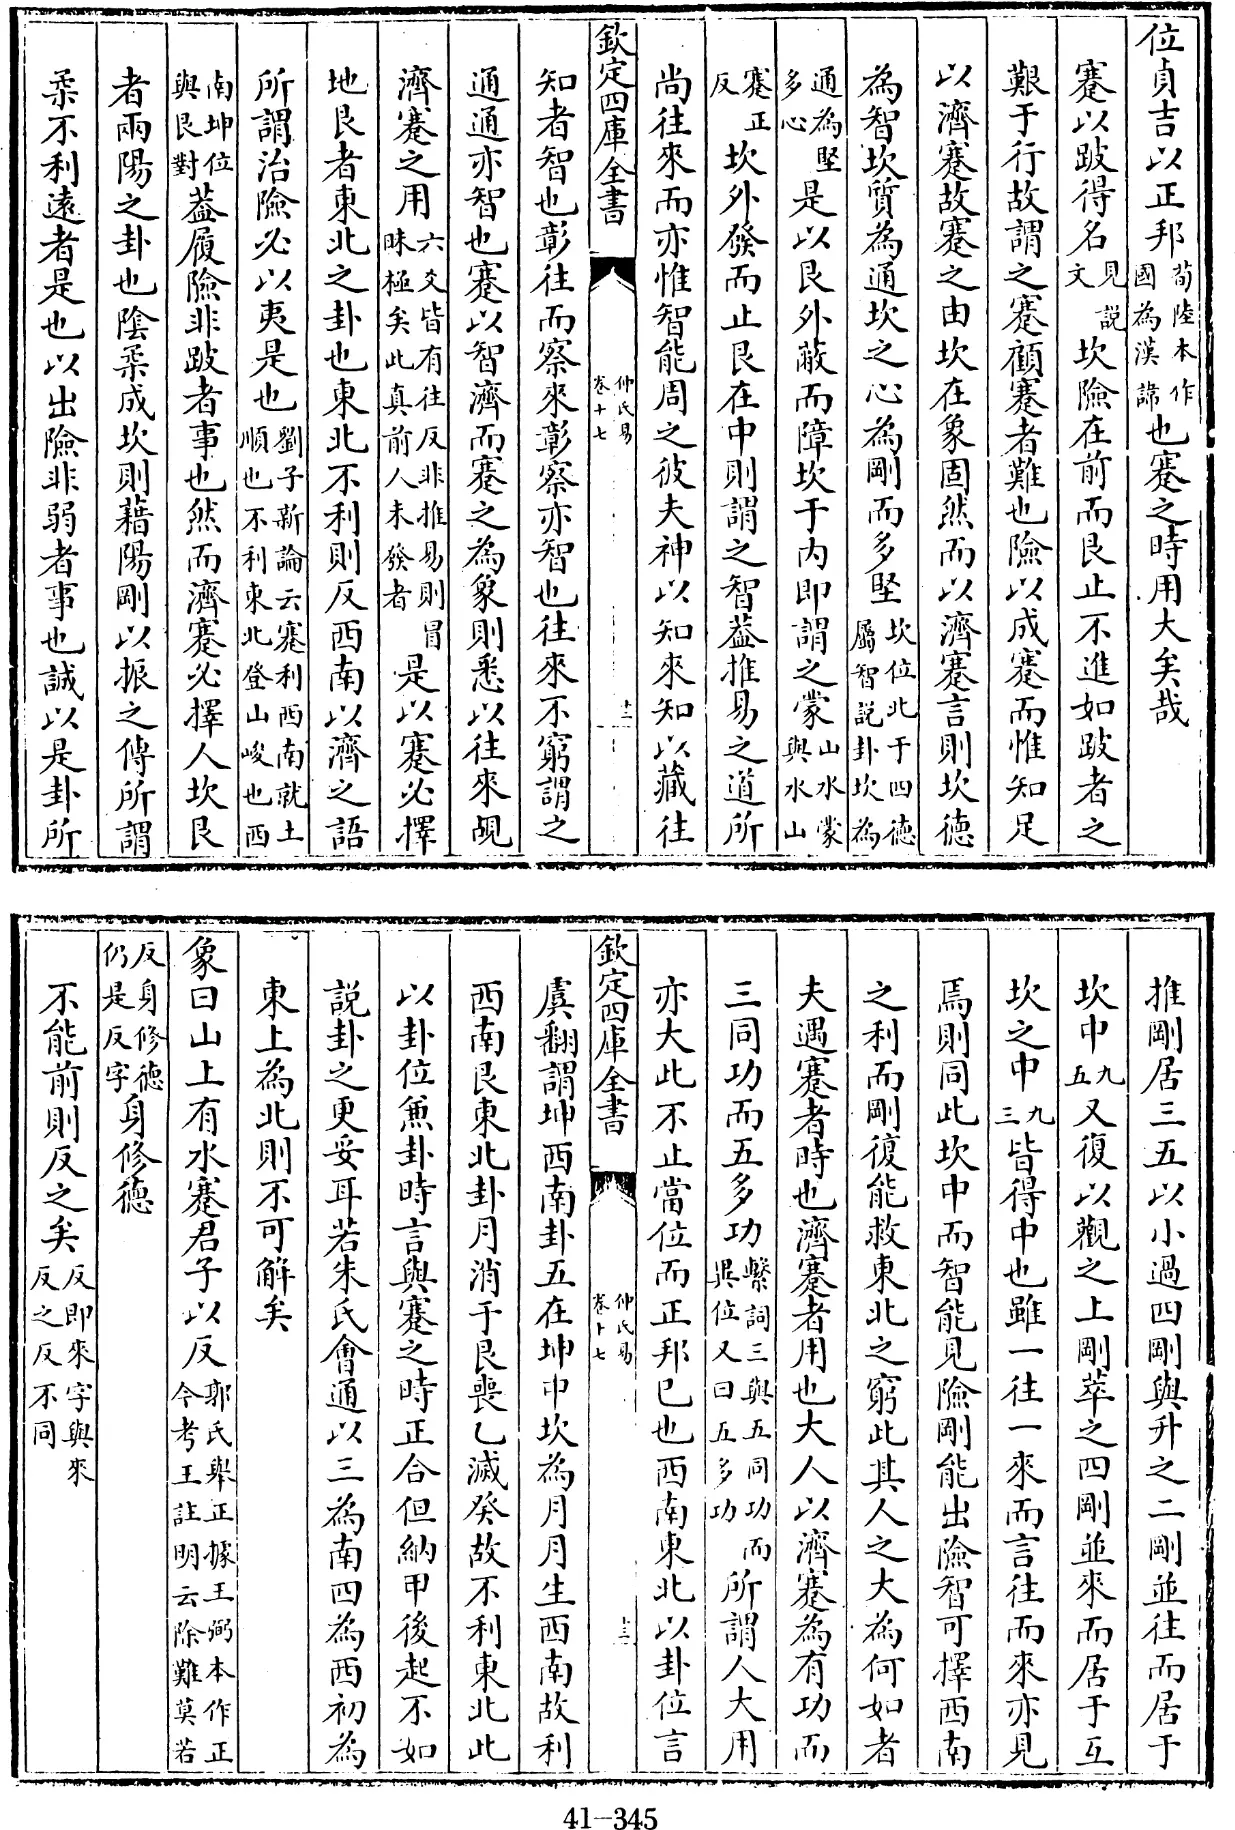 位貞吉以正邦荀陸本作國為漢諱也蹇之時用大矣哉
蹇以跛得名見説文坎險在前而艮止不進如跛者之
艱于行故謂之蹇顧蹇者難也險以成蹇而惟知足
以濟蹇故蹇之由坎在象固然而以濟蹇言則坎德
為智坎質為通坎之心為剛而多堅坎位北于四德屬智説卦坎為
通為堅多心是以艮外蔽而障坎于内即謂之蒙山水蒙與水山
蹇正反坎外發而止艮在中則謂之智葢推易之道所
尚往來而亦惟智能周之彼夫神以知來知以藏往
欽定四庫全書
仲氏易
卷十七
十二
知者智也彰往而察來彰察亦智也往來不窮謂之
通通亦智也蹇以智濟而蹇之為象則悉以往來覘
濟蹇之用六爻皆有往反非推易則冒昧極矣此真前人未發者是以蹇必擇
地艮者東北之卦也東北不利則反西南以濟之語
所謂治險必以夷是也劉子新論云蹇利西南就土順也不利東北登山峻也西
南坤位與艮對葢履險非跛者事也然而濟蹇必擇人坎艮
者兩陽之卦也陰柔成坎則藉陽剛以振之傳所謂
柔不利遠者是也以出險非弱者事也誠以是卦所
推剛居三五以小過四剛與升之二剛並往而居于
坎中九五又復以觀之上剛萃之四剛並來而居于互
坎之中九三皆得中也雖一往一來而言往而來亦見
焉則同此坎中而智能見險剛能出險智可擇西南
之利而剛復能救東北之窮此其人之大為何如者
夫遇蹇者時也濟蹇者用也大人以濟蹇為有功而
三同功而五多功繫詞三與五同功而異位又曰五多功所謂人大用
亦大此不止當位而正邦已也西南東北以卦位言
欽定四庫全書
仲氏易
卷十七
十三
虞翻謂坤西南卦五在坤中坎為月月生西南故利
西南艮東北卦月消于艮喪乙滅癸故不利東北此
以卦位兼卦時言與蹇之時正合但納甲後起不如
説卦之更妥耳若朱氏會通以三為南四為西初為
東上為北則不可解矣
象曰山上有水蹇君子以反郭氏舉正據王弼本作正今考王註明云除難莫若
反身修德仍是反字身修德
不能前則反之矣反即來字與來反之反不同
41-345